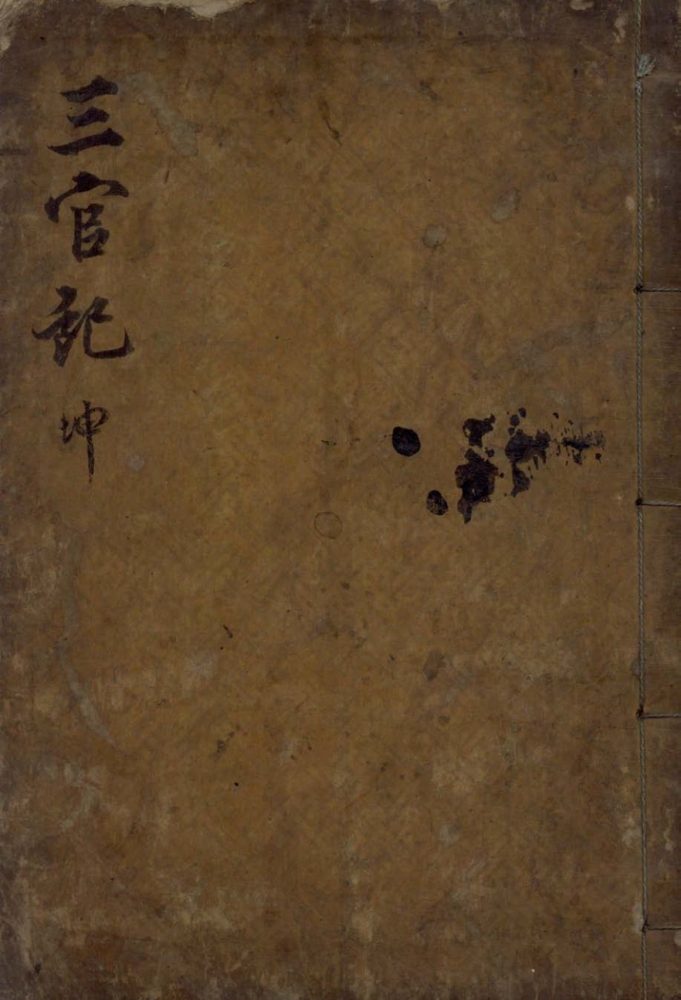 三官記 坤